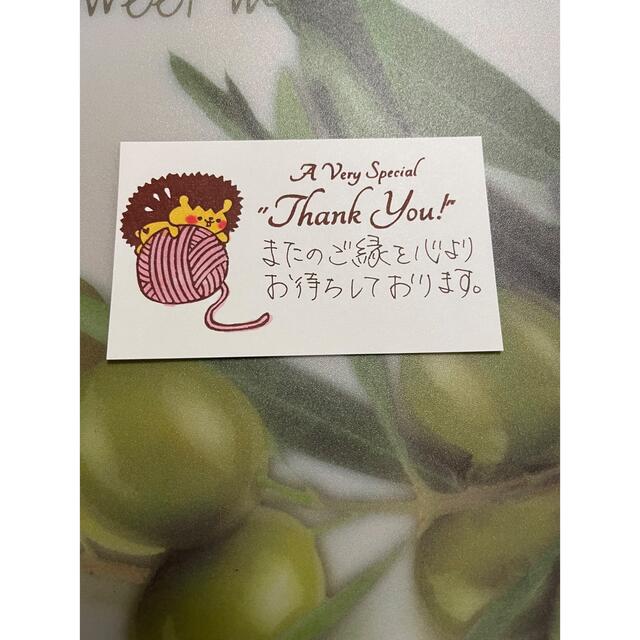 A Very Special
"Thank You!"
またのご縁を心より
お待ちしております。